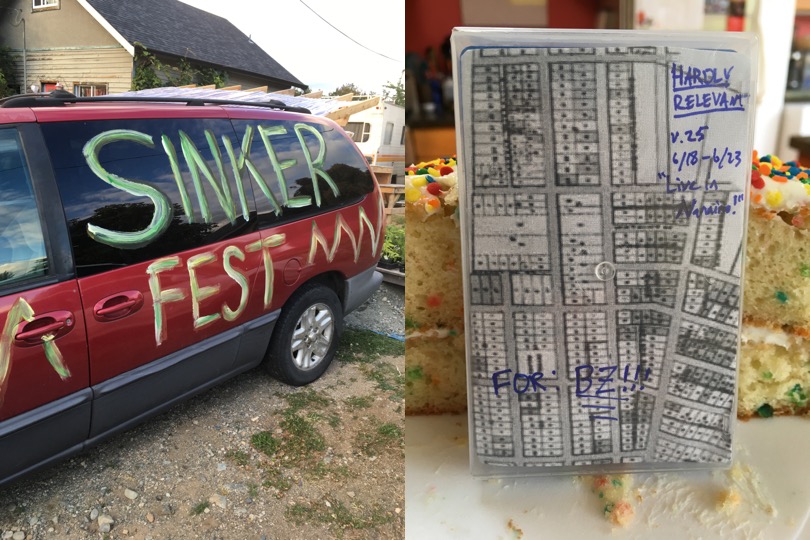 SINKER
FEST
HARDLY
RELEVANT
v.25
6/18-6/23
"Live in
Nanaimo!"
FOR: BZ!!!